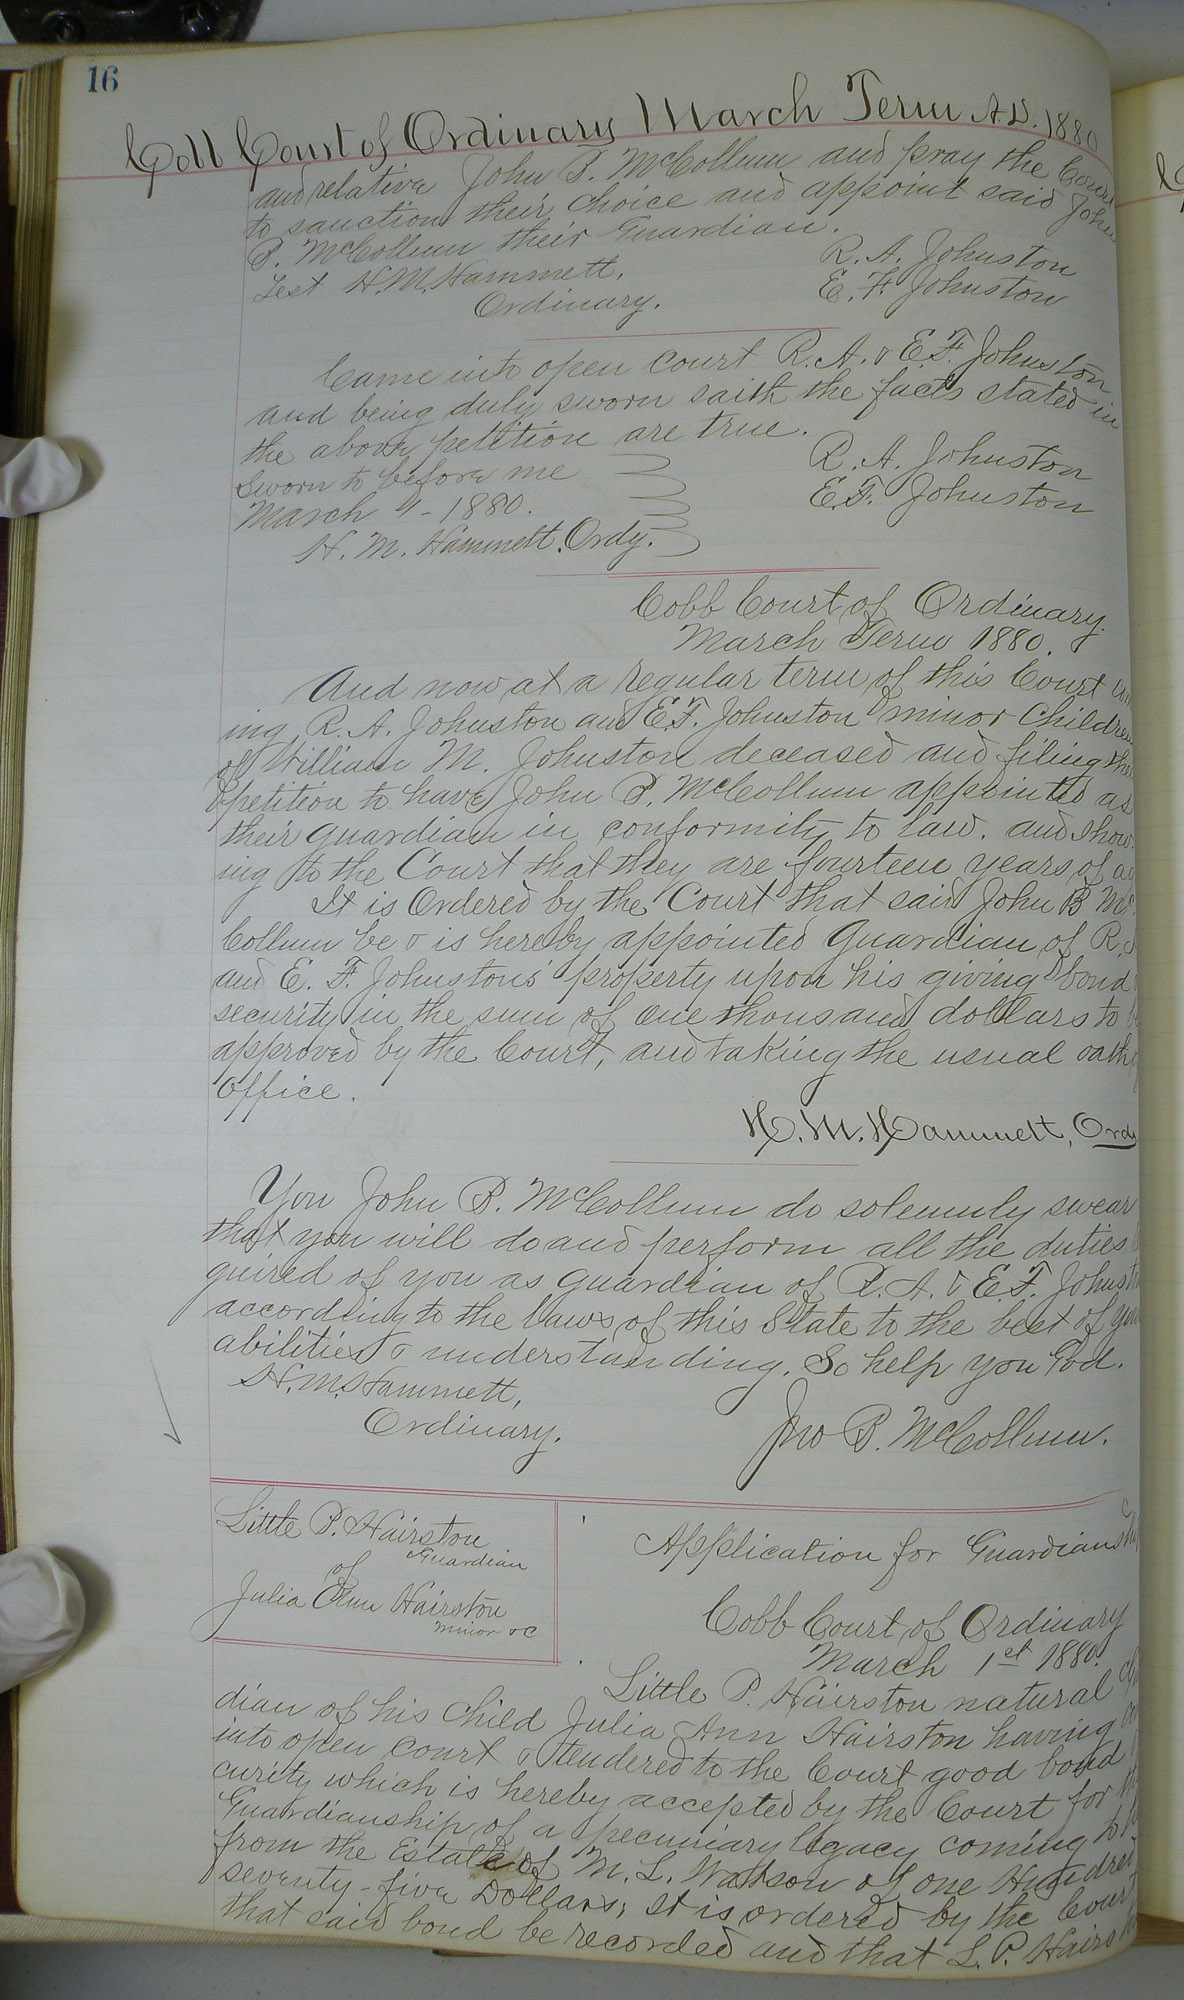 16
Cobb Court of Ordinary March Term A.D. 1880
and relative John B. McCollum and pray the Court
to sanction their choice and appoint said John
B. McCollum their Guardian.
R. A. Johnston
Test H. M. Hammett,
E. F. Johnston
Ordinary.
Came into open court R. A. & E. F. Johnston
and being duly sworn saith the facts stated in
the above petition are true.
R. A. Johnston
Sworn to before me
E. F. Johnston
March 4 - 1880.
H. M. Hammett. Ordy.
Cobb Court of Ordinary.
March Term 1880.
And now at a regular term of this Court
ing R. A. Johnston and E. F. Johnston minor Children
of William M. Johnston deceased and filing
petition to have John B. McCollum appointed as
their guardian in conformity to law. and show-
ing to the Court that they are fourteen years of
It is Ordered by the Court that said John B Mc
Collum be & is hereby appointed guardian of R.
and E. F. Johnstons' property upon his giving bond
security in the sum of one thousand dollars to
approved by the Court, and taking the usual oath
office.
H. M. Hammett, Ordy
You John B. McCollum do solemnly swear
that you will do and perform all the duties
quired of you as guardian of R. A. & E. F. Johnst
according to the laws of this State to the best of
abilities & understanding. So help you God.
H. M. Hammett,
Ordinary.
Jno B. McCollum.
Little P. Hairston
Guardian
of
Julia Ann Hairston
minor &c
Application for Guardianship
Cobb Court of Ordinary
March 1st 1880.
Little P. Hairston natural
dian of his child Julia Ann Hairston having
into open court & tendered to the Court good bond
curity which is hereby accepted by the Court for
Guardianship of a pecuniary legacy coming to
from the Estate of M. L. Watson of one Hundred
seventy-five Dollars, It is ordered by the Court
that said bond be recorded and that L. P. Hairs